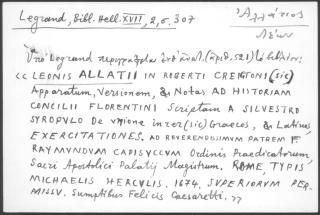 Legrand, Bibl. Hell. XVII, 2, σ. 307
Ἀλλάτιος
Λέων
Ὑπὸ Legrand περιγράφεται (ἀριθ. 521) τὸ βιβλίον:
<< LEONIS ALLATII IN ROBERTI CREYGTONI (sic)
Apparatum, Versionem, & Notas AD HISTORIAM
CONCILII FLORENTINI Scriptam A SILVESTRO
SYROPULO De unione inter (sic) Graecos, & Latinos
EXERCITATIONES, AD REVERENDISSIMUM PATREM F.
RAYMUNDUM CAPISUCCUM Ordinis Praedicatorum,
Sacri Apostolici Palatij Magistrum. ROMAE, TYPIS
MICHAELIS HERCULIS. 1674. SUPERIORUM PER-
MISSU. Sumptibus Felicis Caesaretti. >>